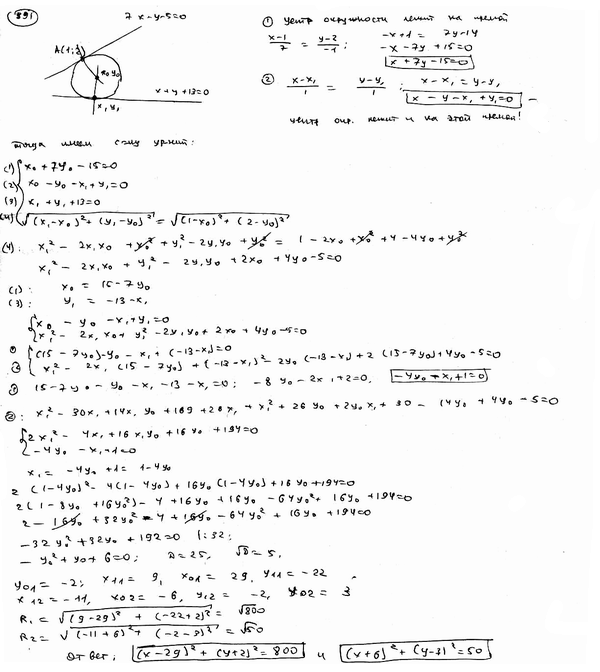 891
7x-y-5=0
A(1;2)
x₀ y₀
x+y+13=0
x₁ y₁
① центр окружности лежит на прямой
(x-1)/7 = (y-2)/-1 ; -x+1 = 7y-14
-x-7y+15=0
x+7y-15=0
② (x-x₁)/1 = (y-y₁)/1 ; x-x₁ = y-y₁
x-y-x₁+y₁=0 –
центр окр. лежит и на этой прямой!
тогда имеем сист урний:
(1) x₀+7y₀-15=0
(2) x₀-y₀-x₁+y₁=0
(3) x₁+y₁+13=0
(4) √((x₁-x₀)²+(y₁-y₀)²) = √((1-x₀)²+(2-y₀)²)
(4): x₁²-2x₁x₀+x₀²+y₁²-2y₁y₀+y₀² = 1-2x₀+x₀²+4-4y₀+y₀²
x₁²-2x₁x₀+y₁²-2y₁y₀+2x₀+4y₀-5=0
(1): x₀ = 15-7y₀
(3): y₁ = -13-x₁
x₀-y₀-x₁+y₁=0
x₁²-2x₁x₀+y₁²-2y₁y₀+2x₀+4y₀-5=0
① (15-7y₀)-y₀-x₁+(-13-x₁)=0
② x₁²-2x₁(15-7y₀)+(-13-x₁)²-2y₀(-13-x₁)+2(15-7y₀)+4y₀-5=0
① 15-7y₀-y₀-x₁-13-x₁=0; -8y₀-2x₁+2=0, -4y₀-x₁+1=0
②: x₁²-30x₁+14x₁y₀+169+26x₁+x₁²+26y₀+2y₀x₁+30-14y₀+4y₀-5=0
2x₁²-4x₁+16x₁y₀+16y₀+194=0
-4y₀-x₁+1=0
x₁ = -4y₀+1 = 1-4y₀
2(1-4y₀)²-4(1-4y₀)+16y₀(1-4y₀)+16y₀+194=0
2(1-8y₀+16y₀²)-4+16y₀+16y₀-64y₀²+16y₀+194=0
2-16y₀+32y₀²-4+16y₀-64y₀²+16y₀+194=0
-32y₀²+32y₀+192=0 |:32;
-y₀²+y₀+6=0; D=25, √D=5,
y₀₁=-2; x₁₁=9, x₀₁=29, y₁₁=-22
x₁₂=-11, x₀₂=-6, y₁₂=-2, y₀₂=3
R₁ = √((9-29)²+(-22+2)²) = √800
R₂ = √((-11+6)²+(-2-3)²) = √50
ответ: (x-29)²+(y+2)²=800 и (x+6)²+(y-3)²=50